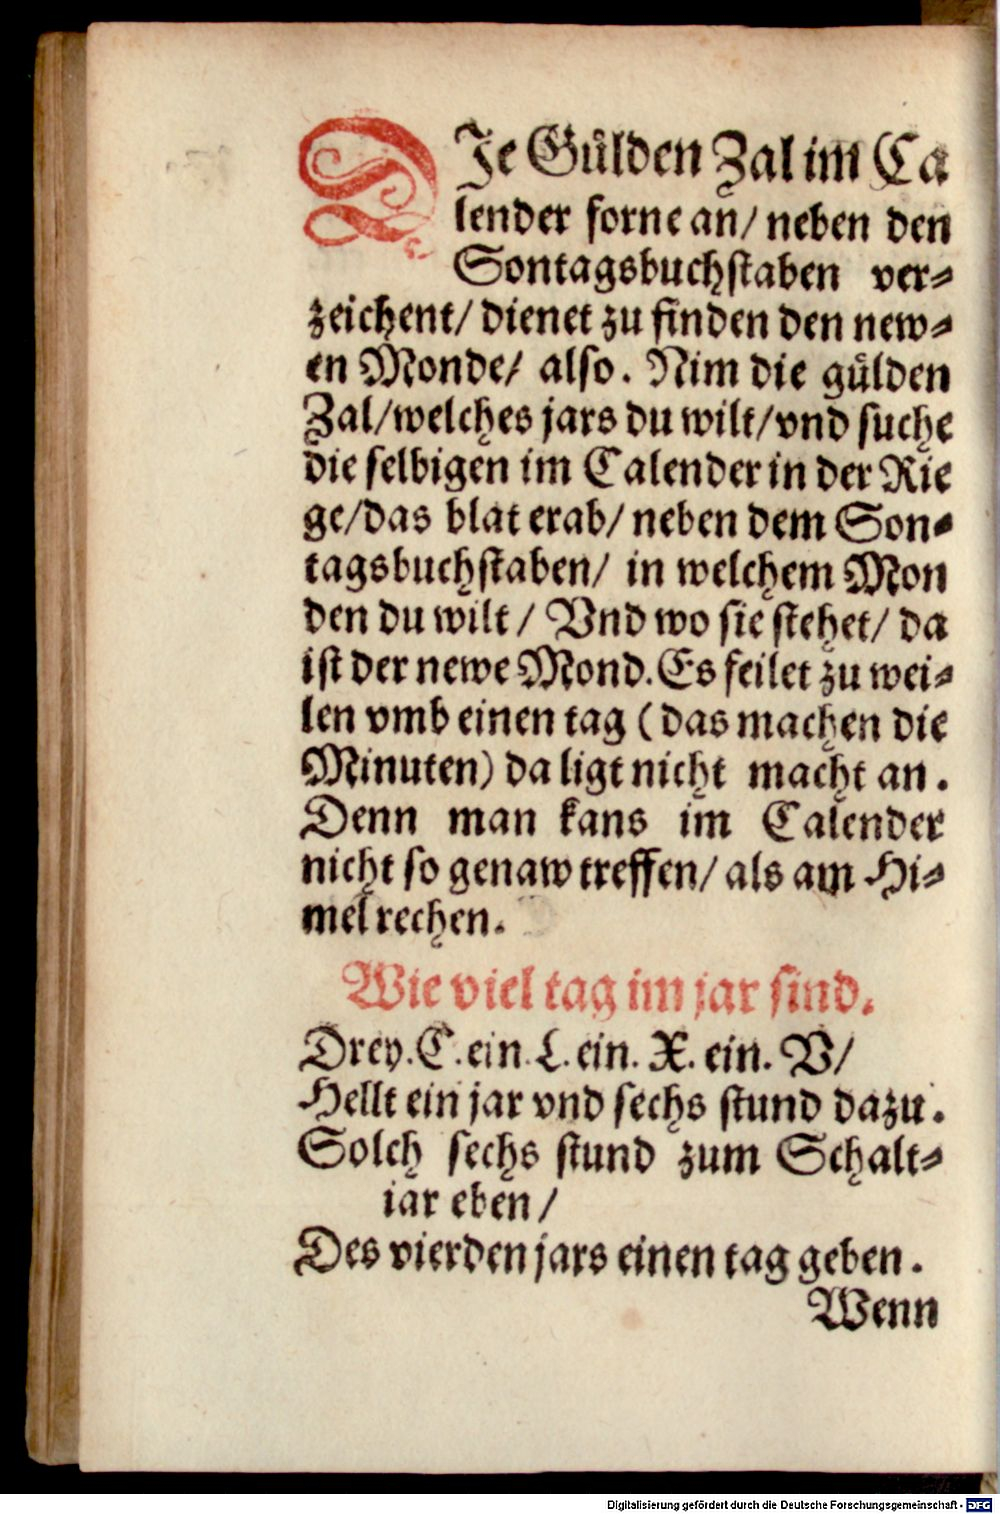 DJe Guͤlden Zal im Ca
lender forne an/ neben den
Sontagsbuchstaben ver⸗
zeichent/ dienet zu finden den new⸗
en Monde/ also. Nim die guͤlden
Zal/welches jars du wilt/vnd suche
die selbigen im Calender in der Rie
ge/das blat erab/ neben dem Son⸗
tagsbuchstaben/ in welchem Mon
den du wilt / Vnd wo sie stehet/ da
ist der newe Mond. Es feilet zu wei⸗
len vmb einen tag (das machen die
Minuten) da ligt nicht macht an.
Denn man kans im Calender
nicht so genaw treffen/ als am Hi⸗
mel rechen.
Wie viel tag im jar sind.
Drey. C. ein. L. ein. X. ein. V/
Hellt ein jar vnd sechs stund dazu.
Solch sechs stund zum Schalt⸗
iar eben/
Des vierden jars einen tag geben.
Wenn
Digitalisierung gefördert durch die Deutsche Forschungsgemeinschaft - DFG